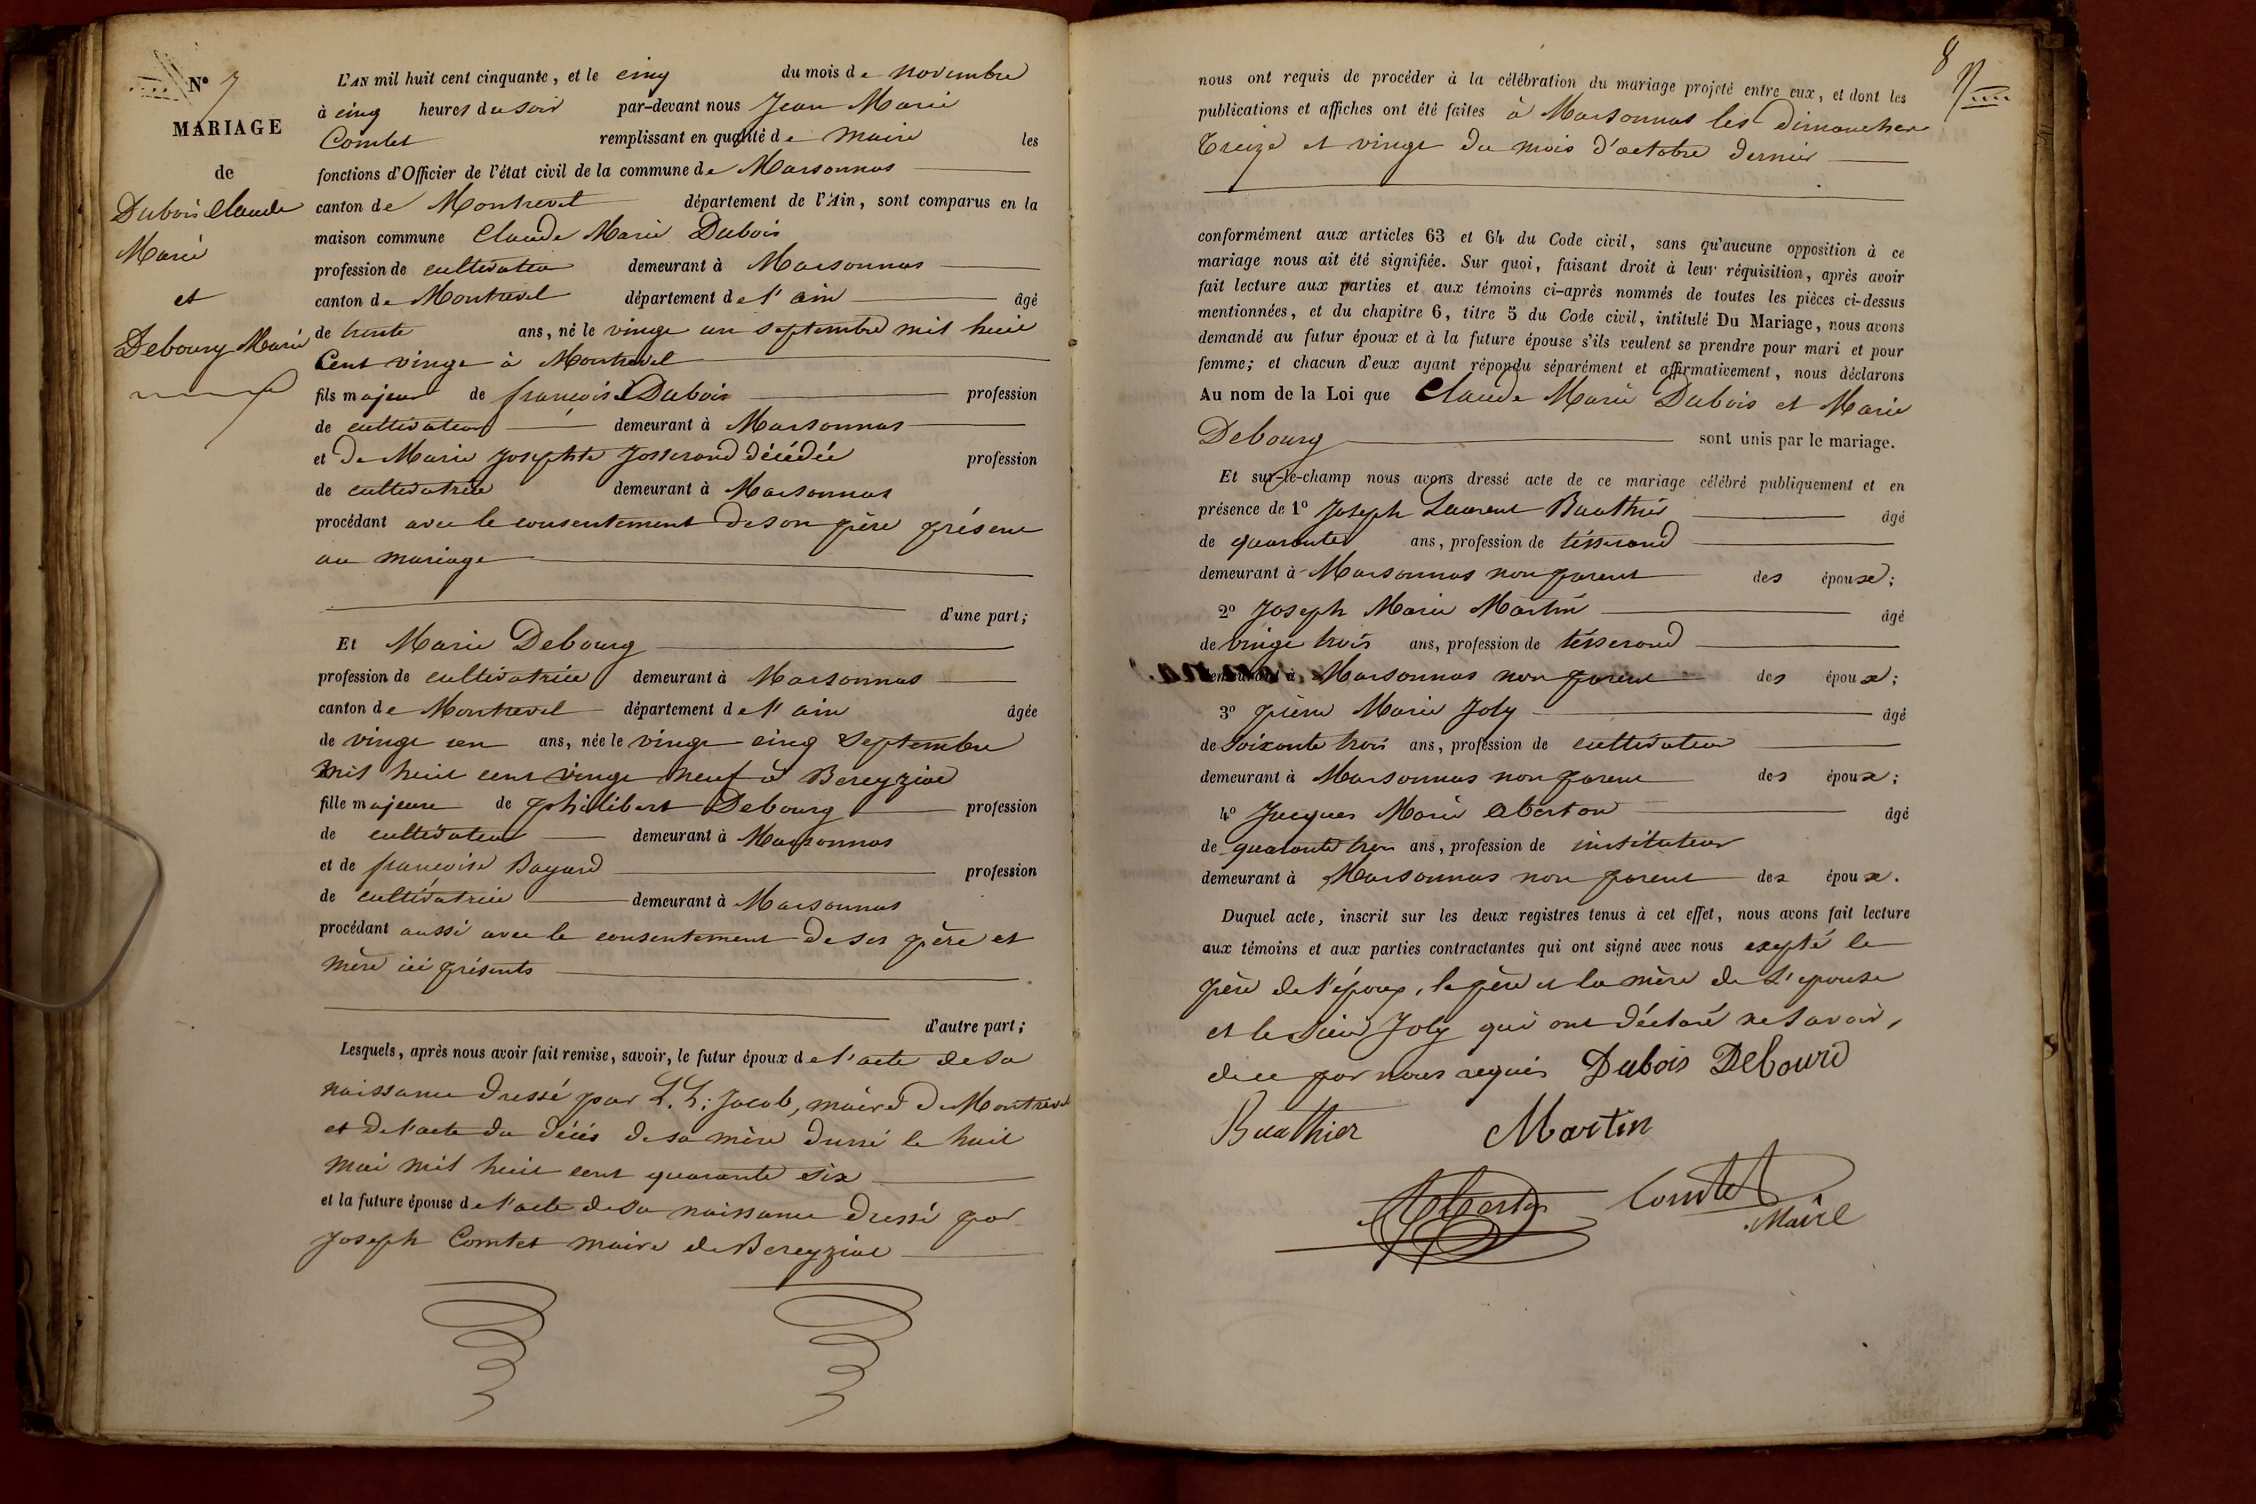 N° 7
MARIAGE
de
Dubois Claude
Marie
et
Debourg Marie
L'AN mil huit cent cinquante, et le cinq du mois de novembre
à cinq heures du soir par-devant nous Jean Marie
Comtet remplissant en qualité de maire les
fonctions d'Officier de l'état civil de la commune de Marsonnas
canton de Montrevel département de l'Ain, sont comparus en la
maison commune Claude Marie Dubois
profession de cultivateur demeurant à Marsonnas
canton de Montrevel département de l'ain âgé
de trente ans, né le vingt un septembre mil huit
Cent vingt à Montrevel
fils majeur de françois Dubois profession
de cultivateur demeurant à Marsonnas
et de Marie Josephte Josserand décédée profession
de cultivatrice demeurant à Marsonnas
procédant avec le consentement de son père présent
au mariage
d'une part;
Et Marie Debourg
profession de cultivatrice demeurant à Marsonnas
canton de Montrevel département de l'ain âgée
de vingt un ans, née le vingt cinq septembre
mil huit cent vingt neuf à Bereyziat
fille majeure de philibert Debourg profession
de cultivateur demeurant à Marsonnas
et de françoise Bayard profession
de cultivatrice demeurant à Marsonnas
procédant aussi avec le consentement de ses père et
mère ici présents
d'autre part;
Lesquels, après nous avoir fait remise, savoir, le futur époux de l'acte de sa
naissance dressé par L. L. Jacob, maire de Montrevel
et de l'acte du décés de sa mère dressé le huit
mai mil huit cent quarante six
et la future épouse de l'acte de sa naissance dressé par
Joseph Comtet maire de Bereyziat
8
nous ont requis de procéder à la célébration du mariage projeté entre eux, et dont les
publications et affiches ont été faites à Marsonnas les dimanches
treize et vingt du mois d'octobre dernier
conformément aux articles 63 et 64 du Code civil, sans qu'aucune opposition à ce
mariage nous ait été signifiée. Sur quoi, faisant droit à leur réquisition, après avoir
fait lecture aux parties et aux témoins ci-après nommés de toutes les pièces ci-dessus
mentionnées, et du chapitre 6, titre 5 du Code civil, intitulé Du Mariage, nous avons
demandé au futur époux et à la future épouse s'ils veulent se prendre pour mari et pour
femme; et chacun d'eux ayant répondu séparément et affirmativement, nous déclarons
Au nom de la Loi que Claude Marie Dubois et Marie
Debourg sont unis par le mariage.
Et sur-le-champ nous avons dressé acte de ce mariage célébré publiquement et en
présence de 1° Joseph Laurent Buathier âgé
de quarante ans, profession de tésserand
demeurant à Marsonnas non parent des époux;
2° Joseph Marie Martin âgé
de vingt trois ans, profession de tésserand
demeurant à Marsonnas non parent des époux;
3° pierre Marie Joly âgé
de soixante trois ans, profession de cultivateur
demeurant à Marsonnas non parent des époux;
4° Jacques Marie Aberton âgé
de quarante trois ans, profession de instituteur
demeurant à Marsonnas non parent des époux.
Duquel acte, inscrit sur les deux registres tenus à cet effet, nous avons fait lecture
aux témoins et aux parties contractantes qui ont signé avec nous exepté le
père de l'époux, le père et la mère de l'epouse
et le sieur Joly qui ont déclaré ne savoir,
de ce par nous requis Dubois Debourd
Buathier Martin
Aberton Comtet
Maire